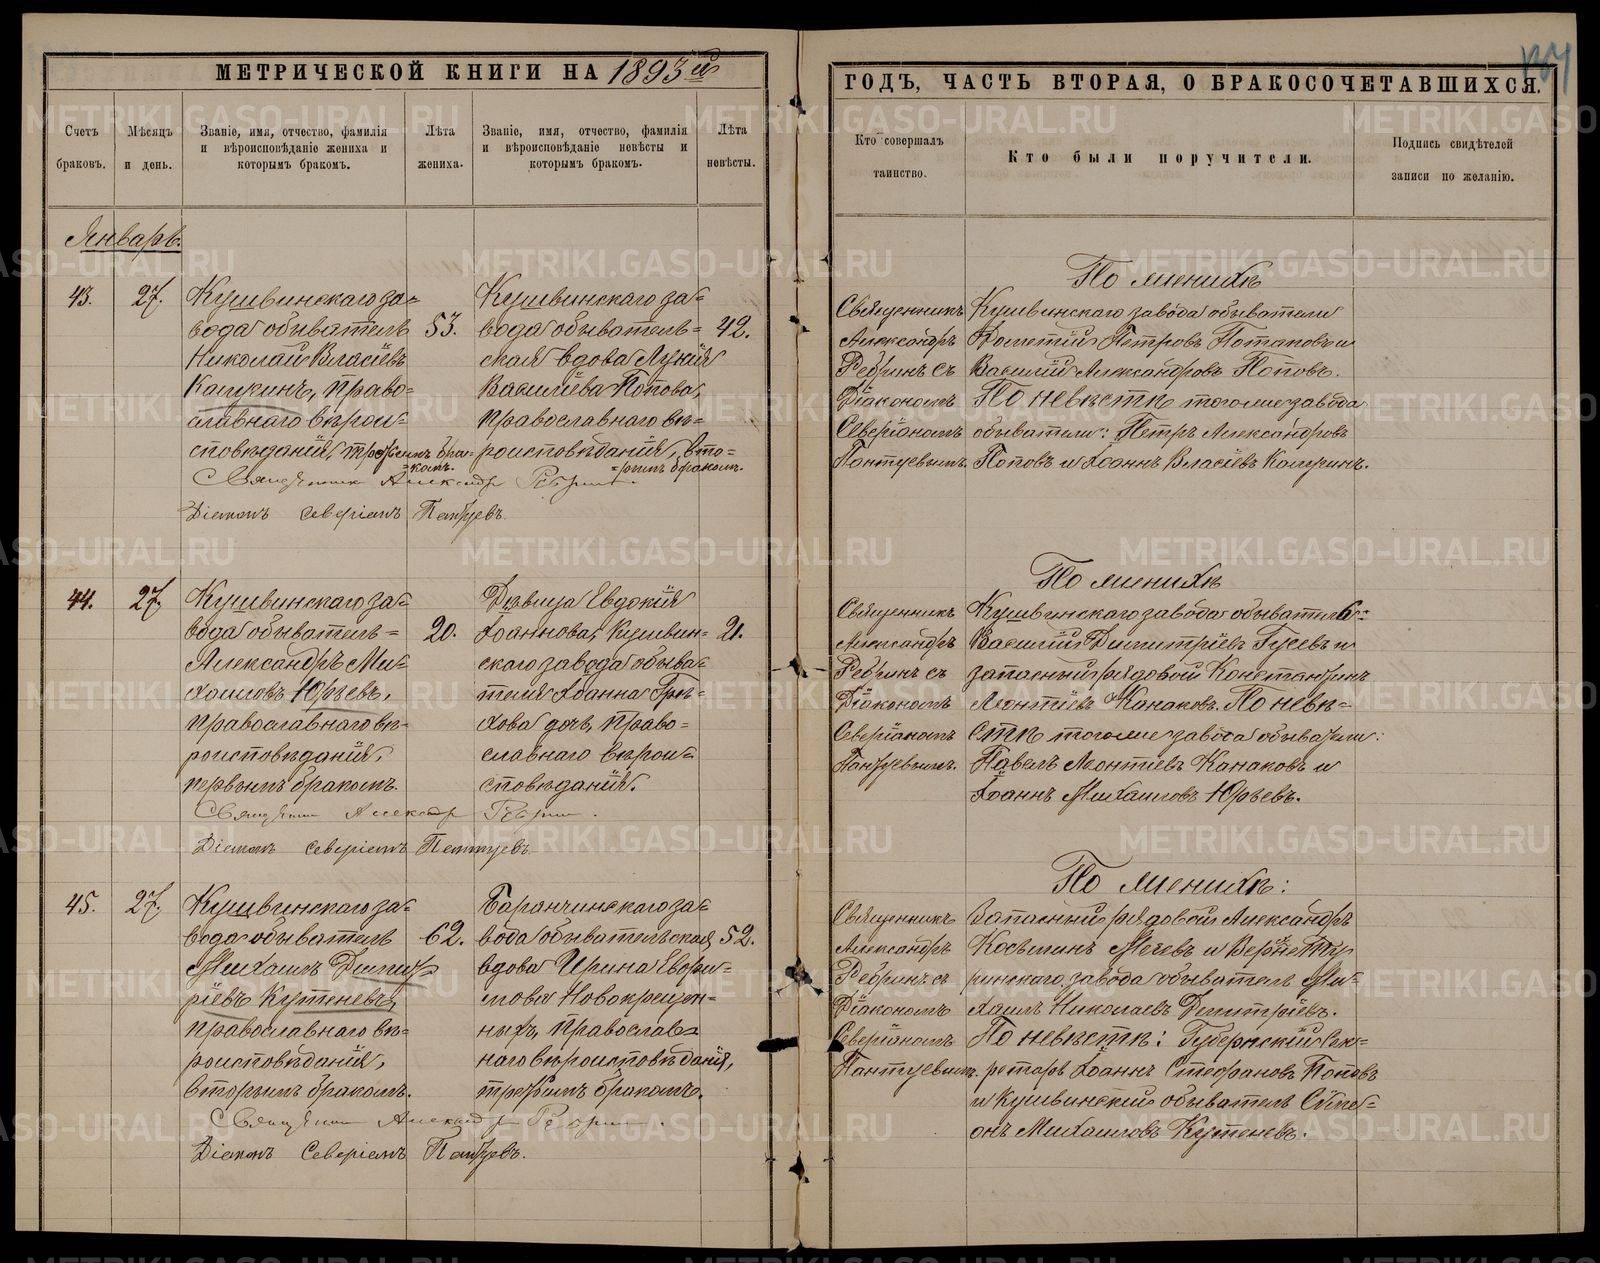 МЕТРИЧЕСКОЙ КНИГИ НА 1893й
ГОДЪ, ЧАСТЬ ВТОРАЯ, О БРАКОСОЧЕТАВШИХСЯ.
Счетъ браковъ.
Мѣсяцъ и день.
Званіе, имя, отчество, фамилія
и вѣроисповѣданіе жениха и
которымъ бракомъ.
Лѣта жениха.
Званіе, имя, отчество, фамилія
и вѣроисповѣданіе невѣсты и
которымъ бракомъ.
Лѣта невѣсты.
Кто совершалъ таинство.
Кто были поручители.
Подпись свидѣтелей
записи по желанію.
Январь.
43.
27.
Кушвинскаго за=
вода обыватель
Николай Власіевъ
Капкинъ, право=
славнаго вѣрои=
сповѣданія, третьимъ бра=
=комъ.
53.
Кушвинскаго за=
вода обыватель=
ская вдова Лукія
Василіева Попова,
православнаго вѣ=
роисповѣданія, вто=
=рымъ бракомъ.
42.
Священникъ Александръ Ребринъ.
Діаконъ Северіанъ Пантуевъ.
Священникъ
Александръ
Ребринъ съ
Діакономъ
Северіаномъ
Пантуевымъ.
По женихѣ
Кушвинскаго завода обыватели
Петровъ Потаповъ и
Василій Александровъ Поповъ.
По невѣстѣ тогоже завода
обыватели: Петръ Александровъ
Поповъ и Іоаннъ Власіевъ
44.
27.
Кушвинскаго за=
вода обыватель=
Александръ Ми=
хаиловъ Юрьевъ,
православнаго вѣ=
роисповѣданія,
первымъ бракомъ.
20.
Дѣвица Евдокія
Іоаннова, Кушвин=
скаго завода обыва=
теля Іоанна Грѣ=
хова дочь, право=
славнаго вѣрои=
сповѣданія.
21.
Священникъ Александръ Ребринъ.
Діаконъ Северіанъ Пантуевъ.
Священникъ
Александръ
Ребринъ съ
Діакономъ
Северіаномъ
Пантуевымъ.
По женихѣ
Кушвинскаго завода обыватель:
Василій Димитріевъ Гусевъ и
запасный рядовой Константинъ
Леонтіевъ Канаковъ. По невѣ=
стѣ тогоже завода обыватели:
Павелъ Леонтіевъ Канаковъ и
Іоаннъ Михаиловъ Юрьевъ.
45.
27.
Кушвинскаго за=
вода обыватель
Михаилъ Димит=
ріевъ Кутеневъ,
православнаго вѣ=
роисповѣданія,
вторымъ бракомъ.
62.
Баранчинскаго за=
вода обывательская
вдова Ирина Евфи=
мова Новокрещен=
ныхъ, православ=
наго вѣроисповѣданія,
третьимъ бракомъ.
52.
Священникъ Александръ Ребринъ.
Діаконъ Северіанъ Пантуевъ.
Священникъ
Александръ
Ребринъ съ
Діакономъ
Северіаномъ
Пантуевымъ.
По женихѣ:
Запасный рядовой Александръ
Косьминъ и Верхнету=
ринскаго завода обыватель Ми=
хаилъ Николаевъ Димитріевъ.
По невѣстѣ: Губернскій Сек=
ретарь Іоаннъ Стефановъ Поповъ
и Кушвинскій обыватель Симе=
онъ Михаиловъ Кутеневъ.
METRIKI.GASO-URAL.RU